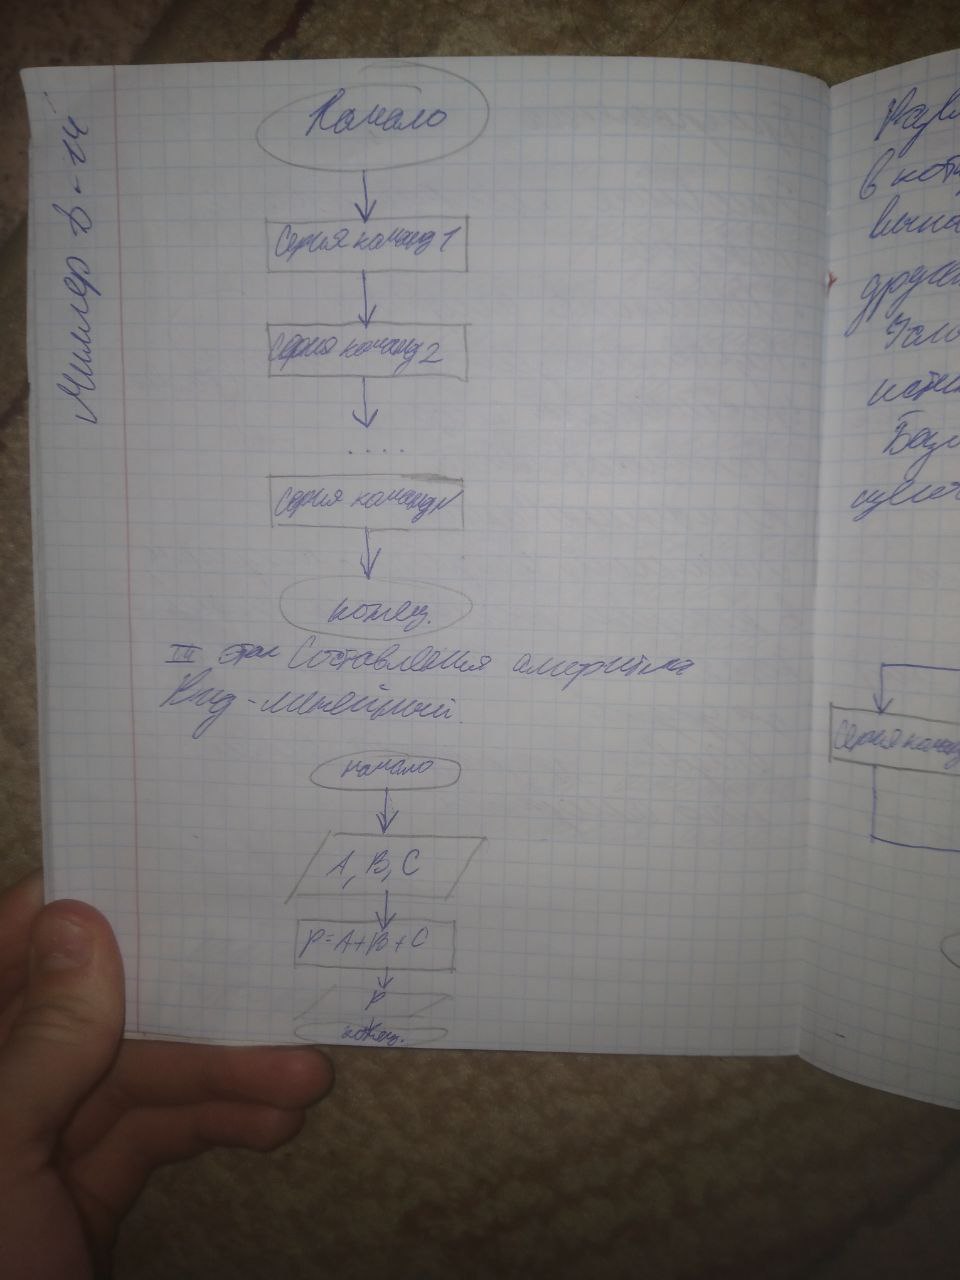 Миллер В-1Ч
Начало
Серия команд 1
Серия команд 2
....
Серия команд N
конец.
III этап Составления алгоритма
Вид - линейный.
начало
A, B, C
P=A+B+C
P
конец.
в
Усло
Серия команд